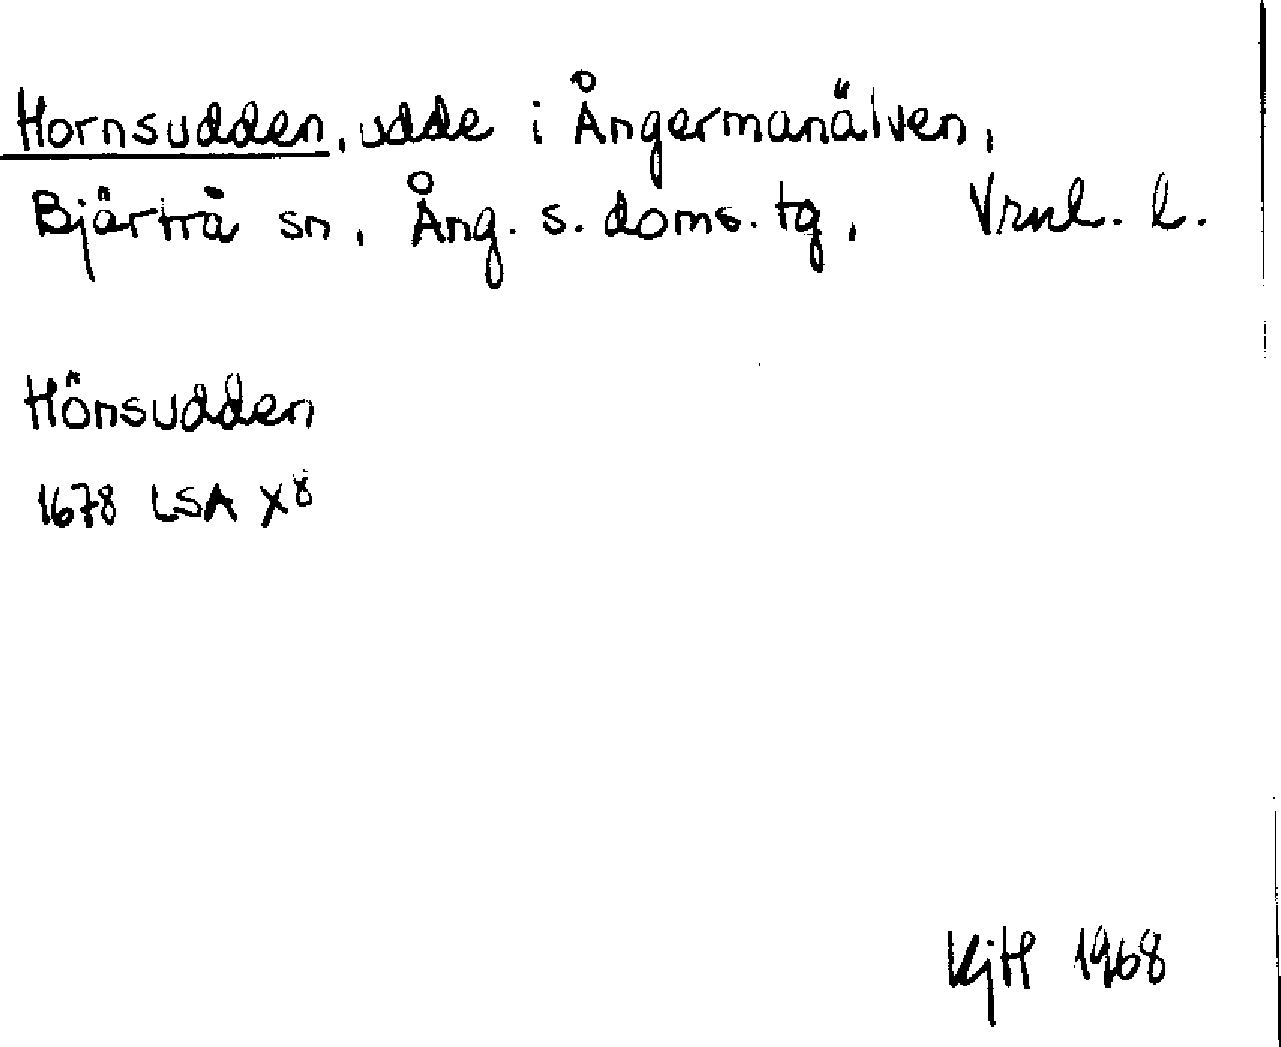 Hornsudden, udde i Ångermanälven,
Bjärtrå sn, Ång. s. doms. tg, Vrnl. l.
Hönsudden
1678 LSA X8
KjH 1968